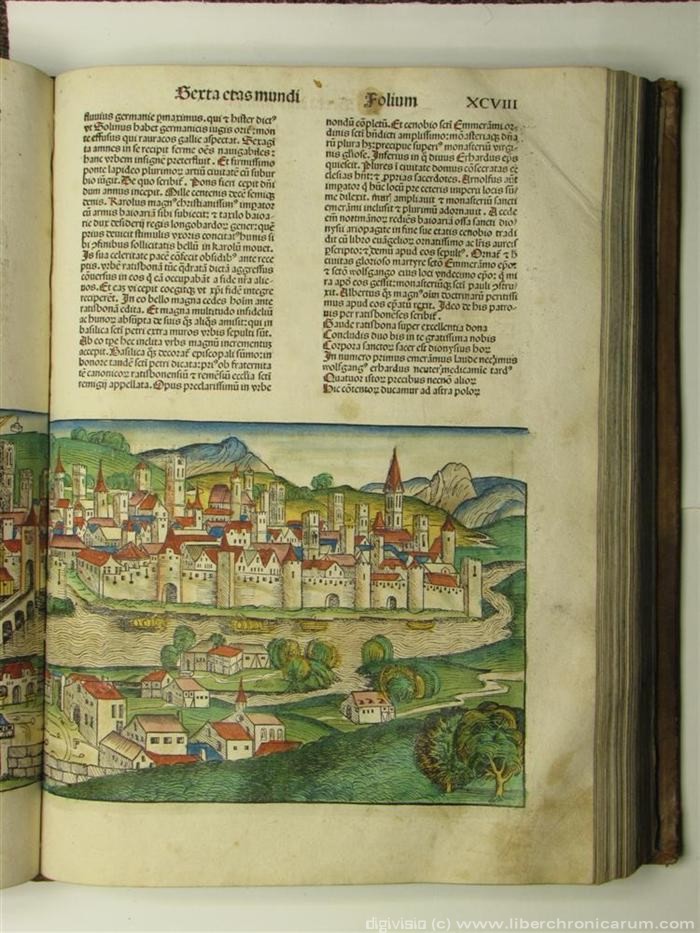 Sexta etas mundi
Folium
XCVIII
fluuius germanie ꝑmaximus. qui ⁊ hister dict⁹
vt Solinus habet germanicis iugis orit᷑: mon
te effusus qui rauracos gallie aspectat. Sexagi
ta amnes in se recipit ferme oēs nauigabiles:
hanc vrbem insignē preterfluit. Et firmissimo
ponte lapideo plurimoꝝ artiū ciuitatē cū subur
bio iūgit. De quo scribit᷑. Pons fieri cepit dn̄i
dum annus incepit. Mille centenis decē semiqꝫ
denis. Karolus magn⁹ christianissim⁹ impator
cū armis baioariā sibi subiecit: ⁊ taxilo baioa⸗
rie dux desiderij regis longobardoꝝ gener: quē
prius deuicit stimulis vxoris concitat⁹ hunis si
bi ɔfinibus sollicitatis bellū in karolū mouet.
Is sua celeritate pacē cōfecit obsidib⁹ ante rece
ptis. vrbē ratisbonā tūc q̄dratā dictā aggressus
cōuersus in eos q̄ eā occupabāt a fide nr̄a alie⸗
nos. Et eas vi cepit coegitqꝫ vt xp̄i fidē integre
reciperēt. In eo bello magna cedes hoīm ante
ratisbonā edita. Et magna multitudo infideliū
ac hunoꝝ absūpta de suis q̄s aliq̄s amisit: qui in
basilica scti petri extra muros vrbis sepulti sūt.
Ab eo tp̄e hec inclita vrbs magnū incrementū
accepit. Basilica q̄s decorat᷑ episcopali sūmo: in
honore tandē scti petri dicata: pri⁹ ob fraternita
tē canonicoꝝ ratisbonēsiū ⁊ remēsiū ecclīa scti
remigij appellata. Opus preclarissimū in vrbe
nondū cōpletū. Et cenobio scti Emmerāmi or⸗
dinis scti bn̄dicti amplissimo: mōasteriaqꝫ dn̄a
rū plura hꝫ: precipue superi⁹ monasteriū virgi⸗
nis gliose. Inferius in q̄ diuus Erhardus ep̄us
quiescit. Plures ī ciuitate domus cōsecratas ec
clesias hn̄t: ⁊ ꝓprias sacerdotes. Arnolfus aūt
impator q̄ huc locū pre ceteris imperij locis sū⸗
me dilexit. mur᷑ ampliauit ⁊ monasteriū sancti
emerāmi inclusit ⁊ plurimū adornauit. A cede
em̄ normānoꝝ rediēs baioariā ossa sancti dio
nysij ariopagite in fine sue etatis cenobio tradi
dit cū libro euāgelioꝝ ornatissimo ac lr̄is aureis
ꝑscriptoꝝ: ⁊ demū apud eos sepult⁹. Ornat᷑ ⁊ h̄
ciuitas glorioso martyre sctō Emerāmo ep̄o:
⁊ sctō wolfgango eius loci vndecimo ep̄o: q̄ mi
ra apō eos gessit: monasteriūqꝫ scti pauli ɔstru⸗
xit. Albertus q̄s magn⁹ oīm doctrinarū peritissi
mus apud eos ep̄atū rexit. Ideo de his patro⸗
nis per ratisbonēses scribit᷑.
Gaude ratisbona super excellentia dona
Concludis duo bis in te gratissima nobis
Corpora sanctoꝝ sacer est dionysius hoꝝ
In numero primus emerāmus laude nec̄ himus
wolfgang⁹ erhardus neuter̄ medicamīe tard⁹
Quatuor istoꝝ precibus necnō alioꝝ
Hic cōtentoꝝ ducamur ad astra poloꝝ
digivisio (c) www.liberchronicarum.com